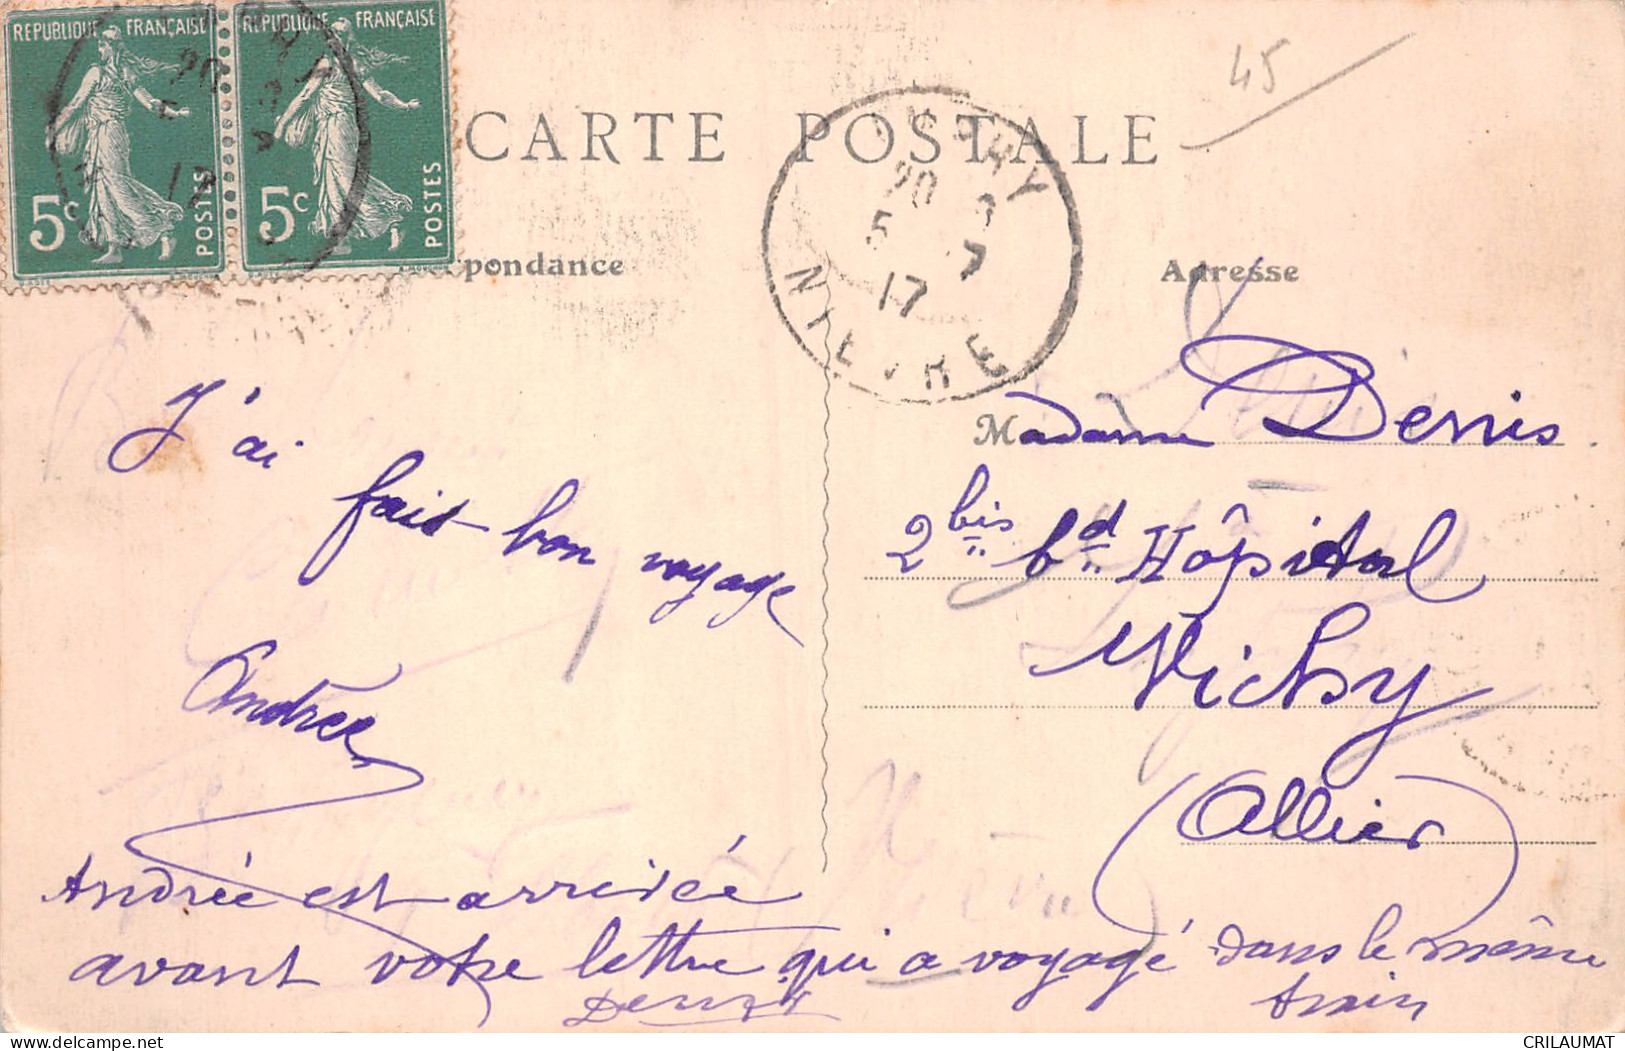 RÉPUBLIQUE FRANÇAISE
5c POSTES
RÉPUBLIQUE FRANÇAISE
5c POSTES
45
CARTE POSTALE
pondance
Adresse
20
5 7
17
NIEVRE
J'ai
fait bon voyage
Andrée
Madame Denis
2 bis bd Hôpital
Vichy
(Allier)
Andrée est arrivée
avant votre lettre qui a voyagé dans le même
train
CRILAUMAT